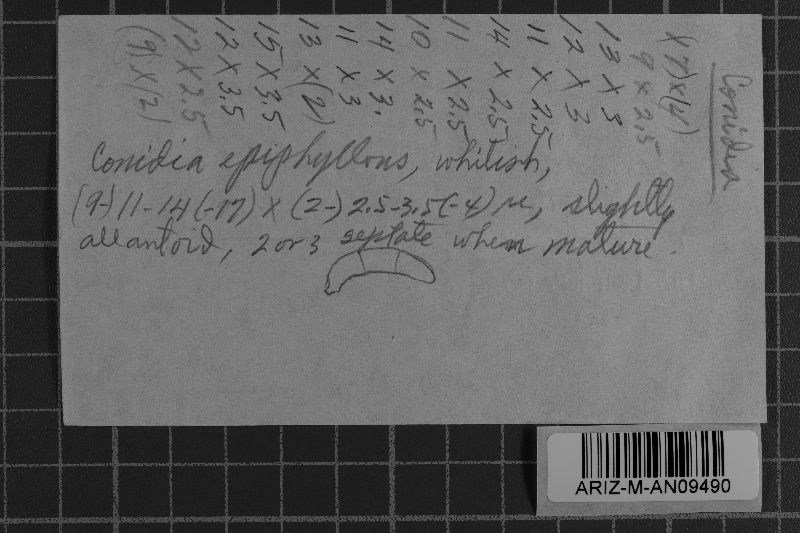 Conidia
(17)×(4)
9 × 2.5
13 × 3
12 × 3
11 × 2.5
14 × 2.5
11 × 2.5
10 × 2.5
14 × 3.
11 × 3
13 × (2)
15 × 3.5
12 × 3.5
12 × 2.5
(9) × (2)
Conidia epiphyllous, whitish,
(9-) 11-14 (-17) × (2-) 2.5-3.5 (-4) μ, slightly
allantoid, 2 or 3 septate when mature.
ARIZ-M-AN09490